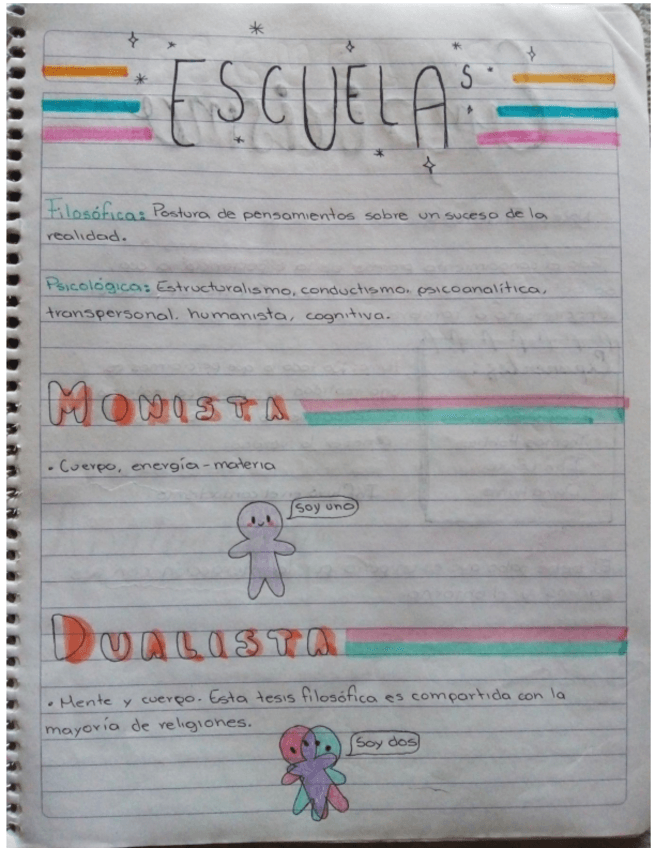 ESCUELAS
Filosófica: Postura de pensamientos sobre un suceso de la
realidad.
Psicológica: Estructuralismo, conductismo, psicoanalítica,
transpersonal. humanista, cognitiva.
MONISTA
• Cuerpo, energía-materia
Soy uno
DUALISTA
• Mente y cuerpo. Esta tesis filosófica es compartida con la
mayoría de religiones.
Soy dos